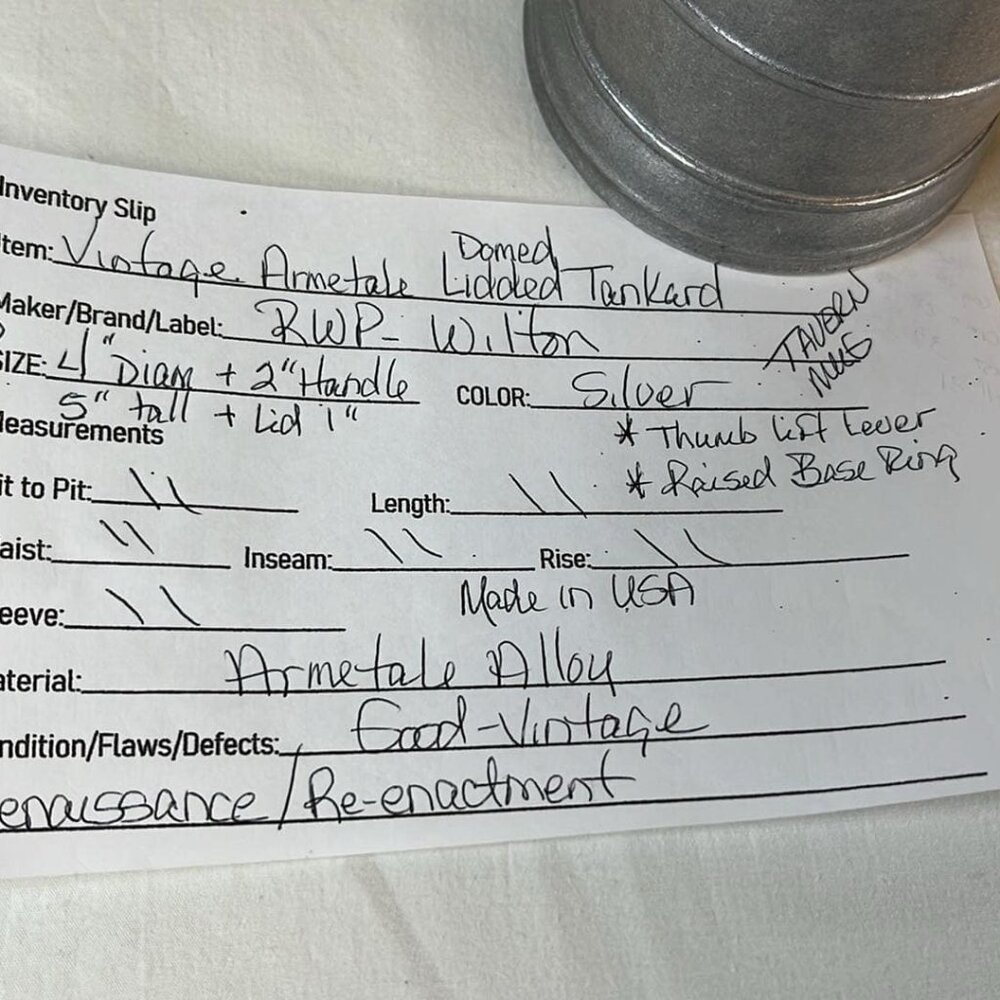 Inventory Slip
Domed
tem: Vintage Armetale Lidded Tankard
Maker/Brand/Label: RWP- Wilton
TAVERN
MUG
SIZE: 4" Diam + 2" Handle COLOR: Silver
5" tall + Lid 1"
* Thumb Lift Lever
Measurements
* Raised Base Ring
it to Pit: \\ Length: \\
aist: \\ Inseam: \\ Rise: \\
Made in USA
eeve: \\
aterial: Armetale Alloy
ndition/Flaws/Defects: Good-Vintage
enaissance/Re-enactment